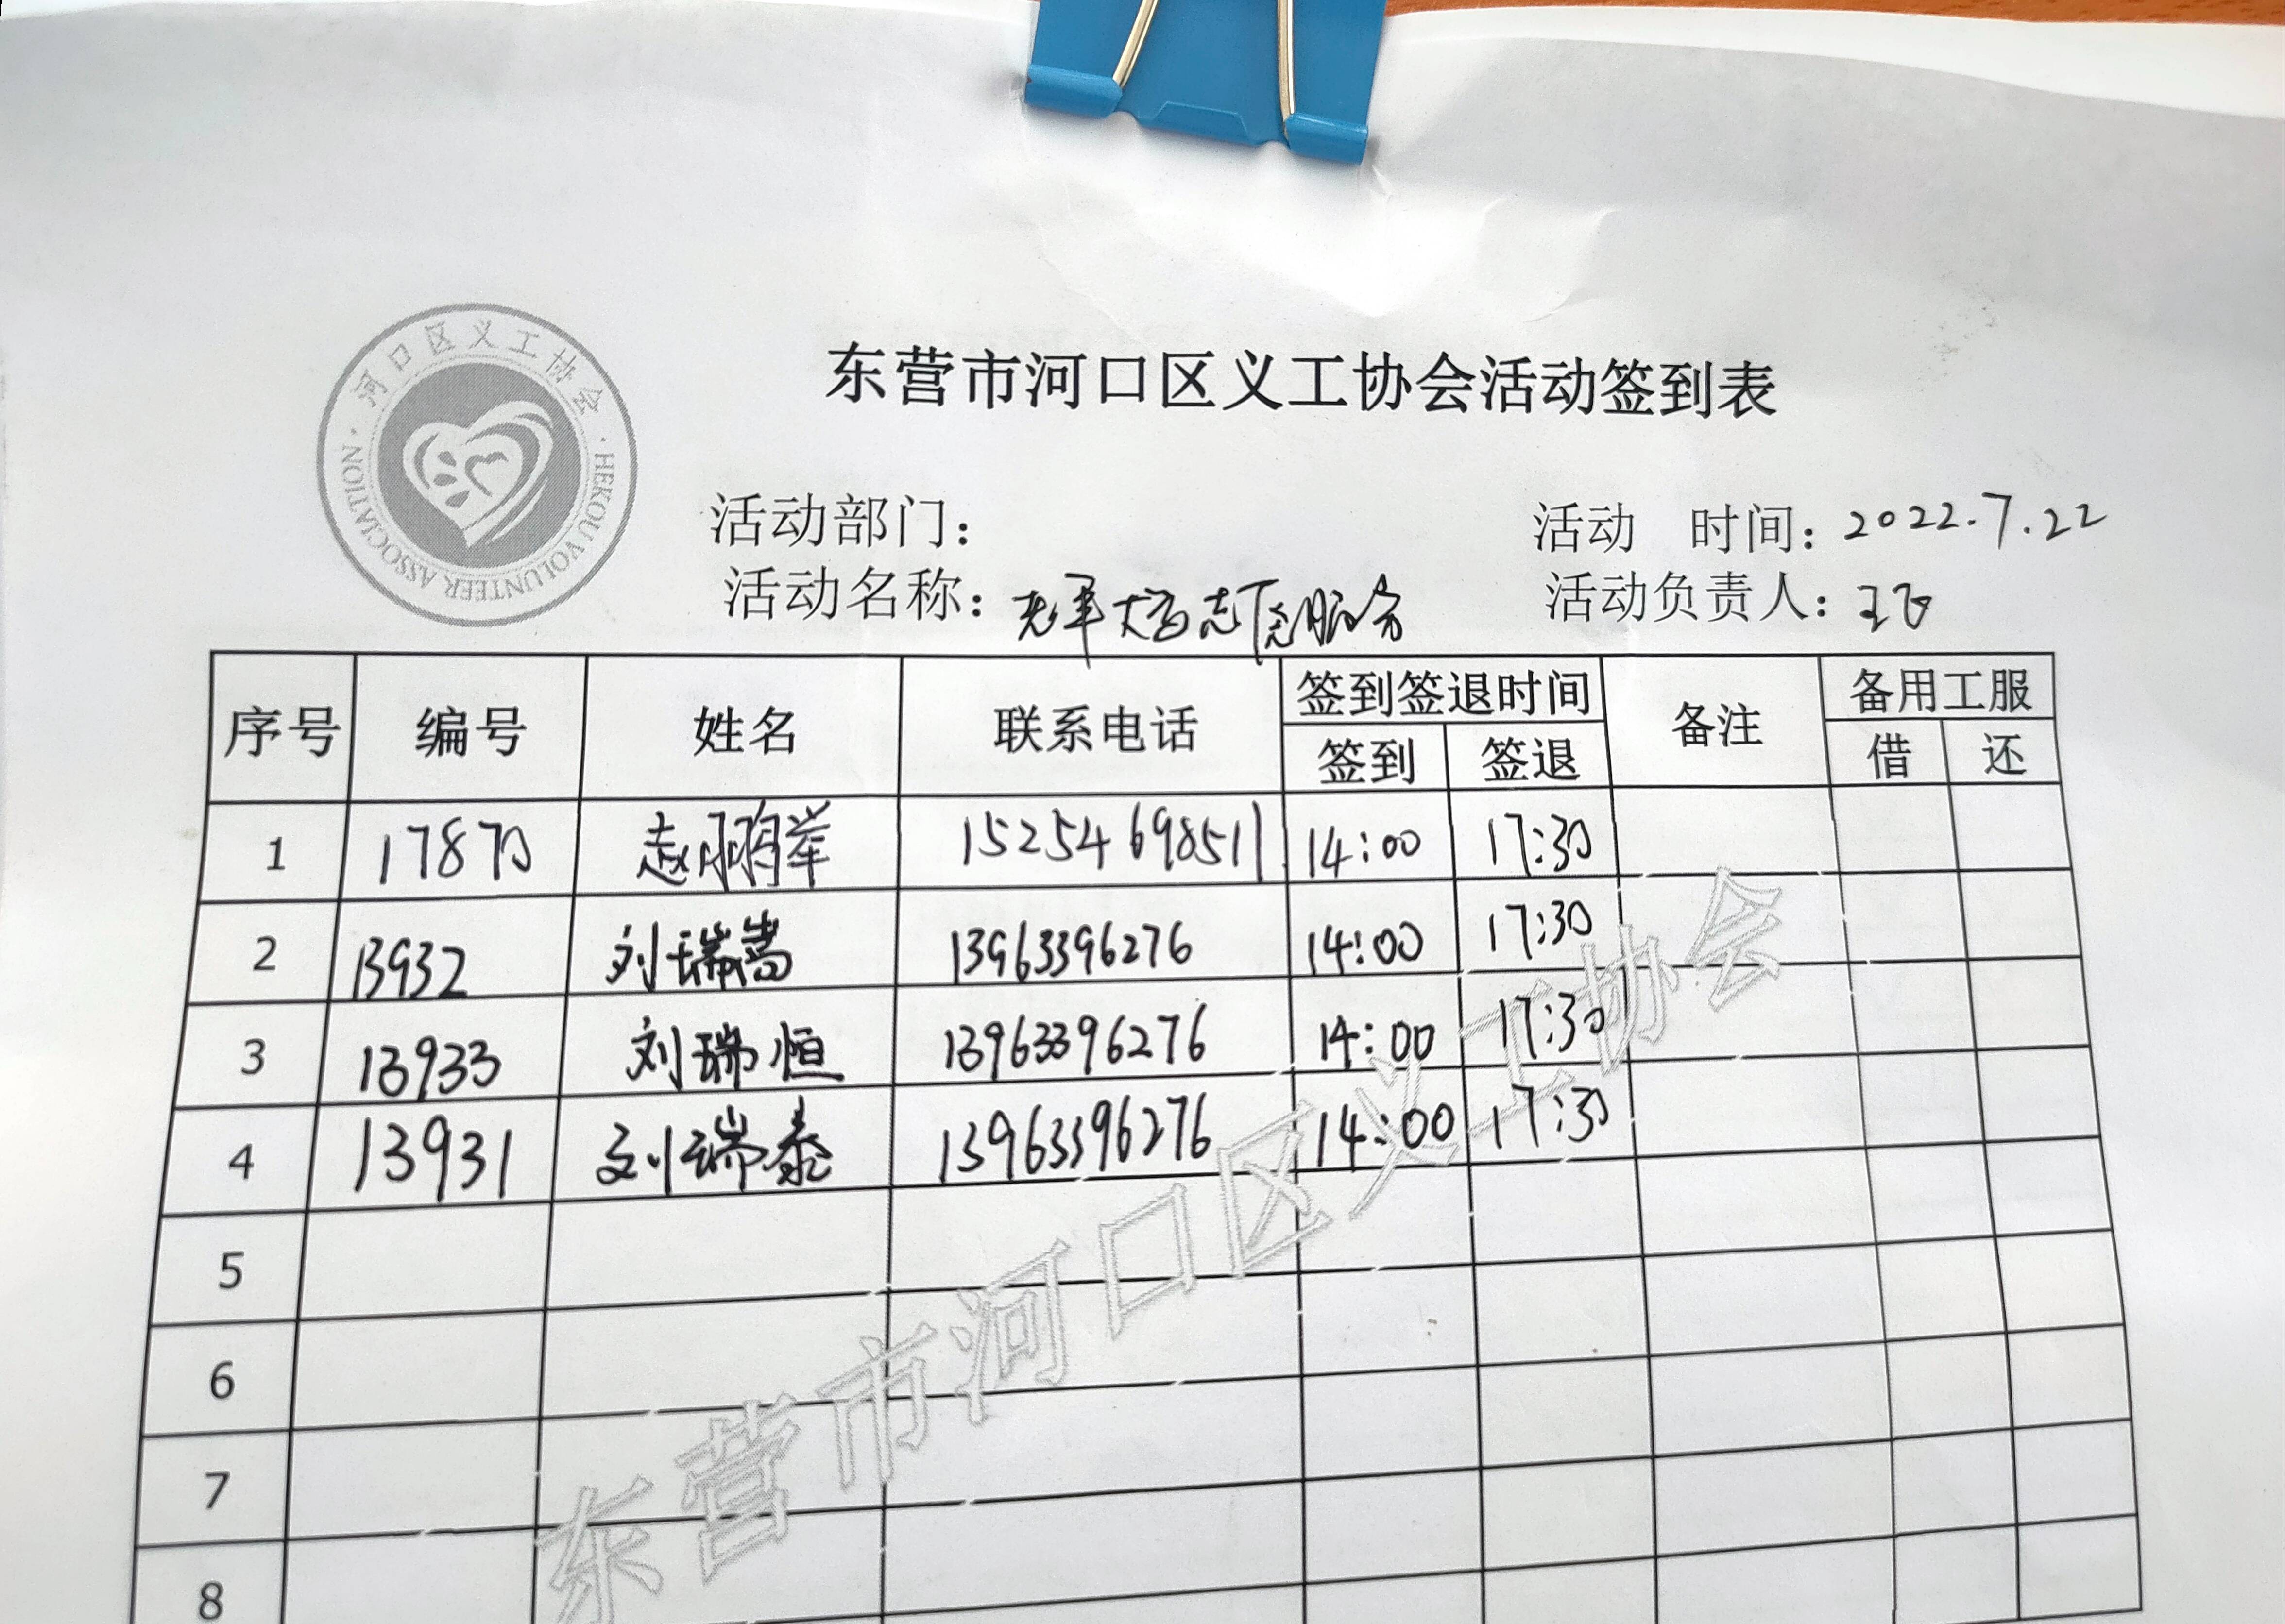 河口区义工协会
HEKOU VOLUNTEER ASSOCIATION
东营市河口区义工协会活动签到表
活动部门： 活动 时间：2022.7.22
活动名称：老年大学志愿服务 活动负责人：王飞
序号 编号 姓名 联系电话 签到签退时间 备注 备用工服
签到 签退 借 还
1 赵鹏举 15254698511 14:00 17:30
2 13932 刘瑞嵩 13963396276 14:00 17:30
3 13933 刘瑞恒 13963396276 14:00 17:30
4 13931 刘瑞泰 13963396276 14:00 17:30
5
6
7
8
东营市河口区义工协会